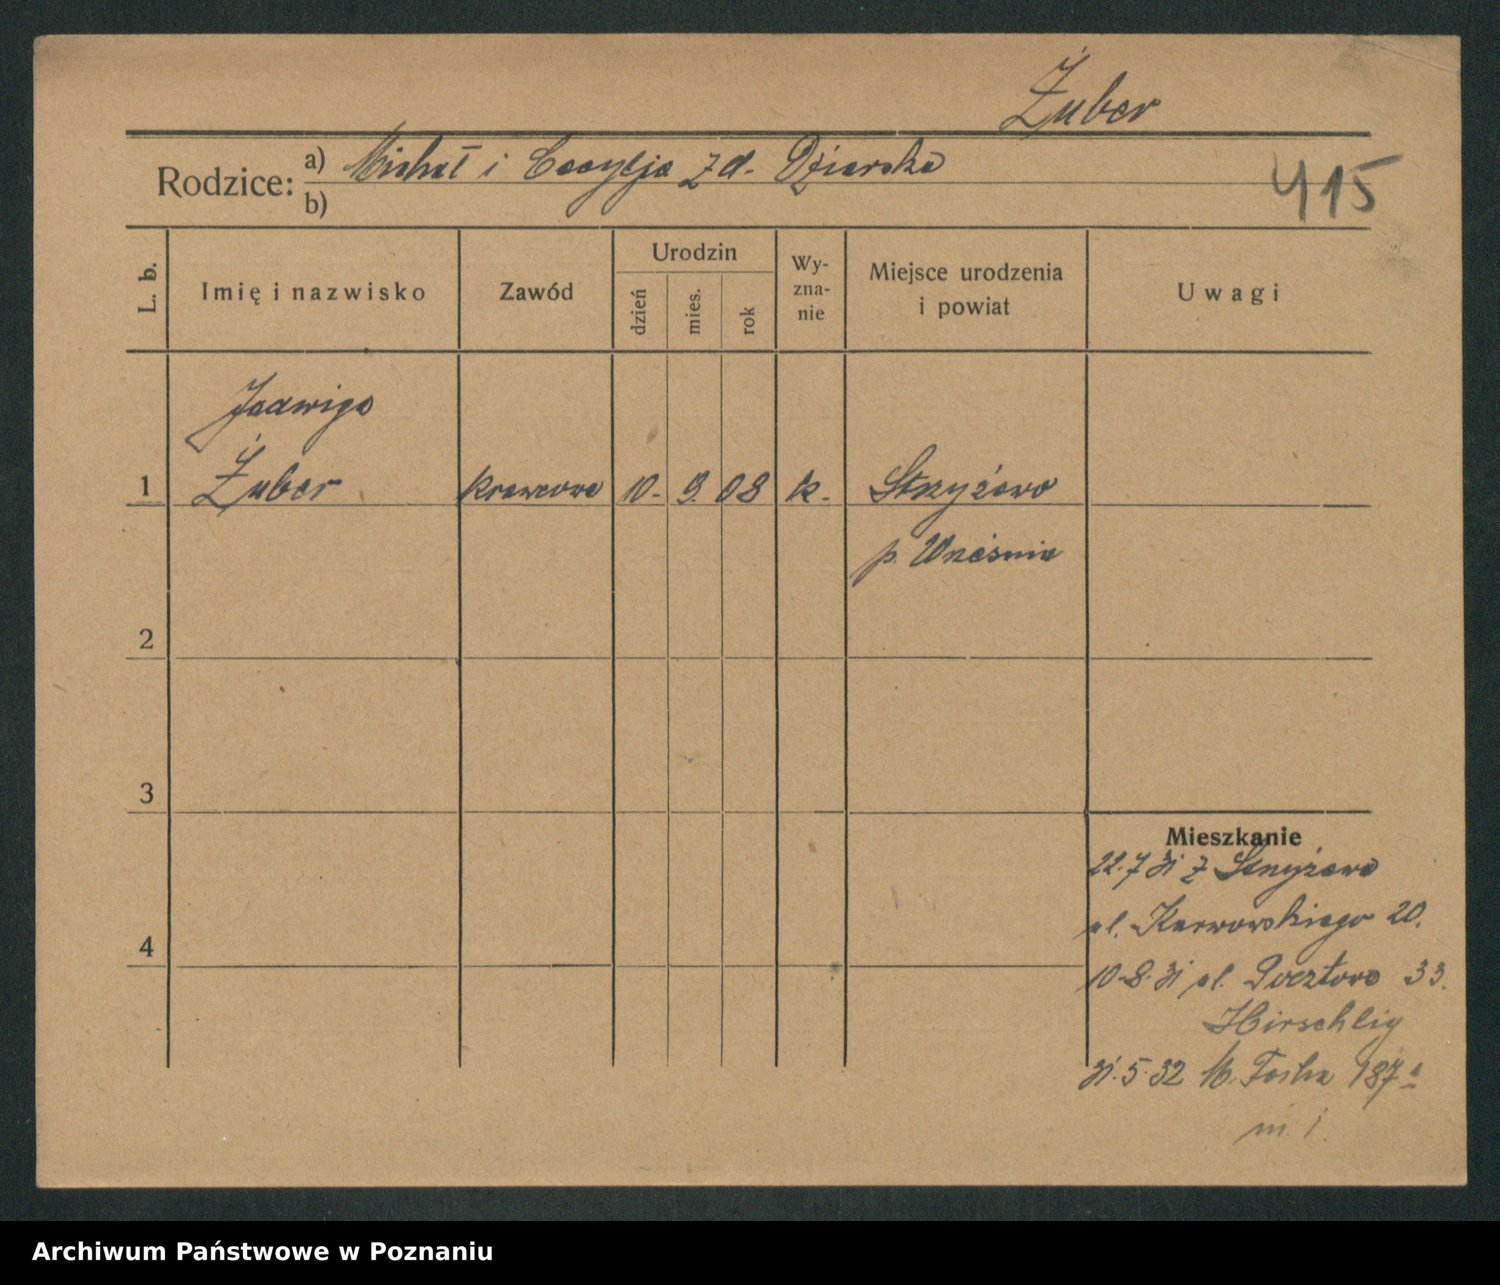 Żuber
Rodzice: a) Michał i Cecylja z d. Dziarska
b)
415
L. b.
Imię i nazwisko
Zawód
Urodzin
dzień
mies.
rok
Wy-
zna-
nie
Miejsce urodzenia
i powiat
Uwagi
Jadwiga
1 Żuber krawcowa 10. 9. 08 k. Strzyżewo
p. Września
2
3
Mieszkanie
22.7 31 z Strzyżewo
ul. Karwowskiego 20.
4
10.8.31 ul. Pocztowa 33.
Hirschlig
31.5.32 M. Focha 187a
m. 1.
Archiwum Państwowe w Poznaniu